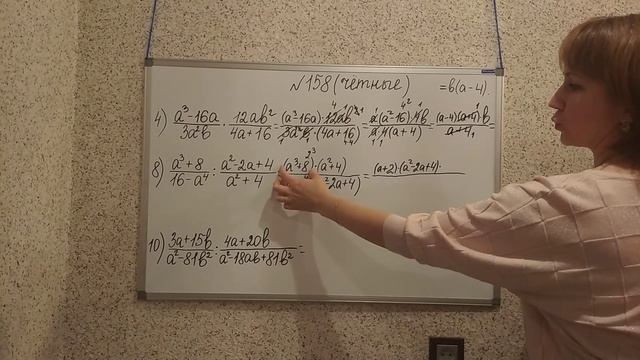 №158 (четные) =b(a-4).
4) a³-16a / 3a²b · 12ab² / 4a+16 = (a³-16a)·12ab² / 3a²b·(4a+16) = a(a²-16)·4b / a·4(a+4) = (a-4)(a+4)b / a+4 =
8) a³+8 / 16-a⁴ : a²-2a+4 / a²+4 (a³+8)·(a²+4) / 2a+4) = (a+2)·(a²-2a+4)·
10) 3a+15b / a²-81b² : 4a+20b / a²-18ab+81b² =